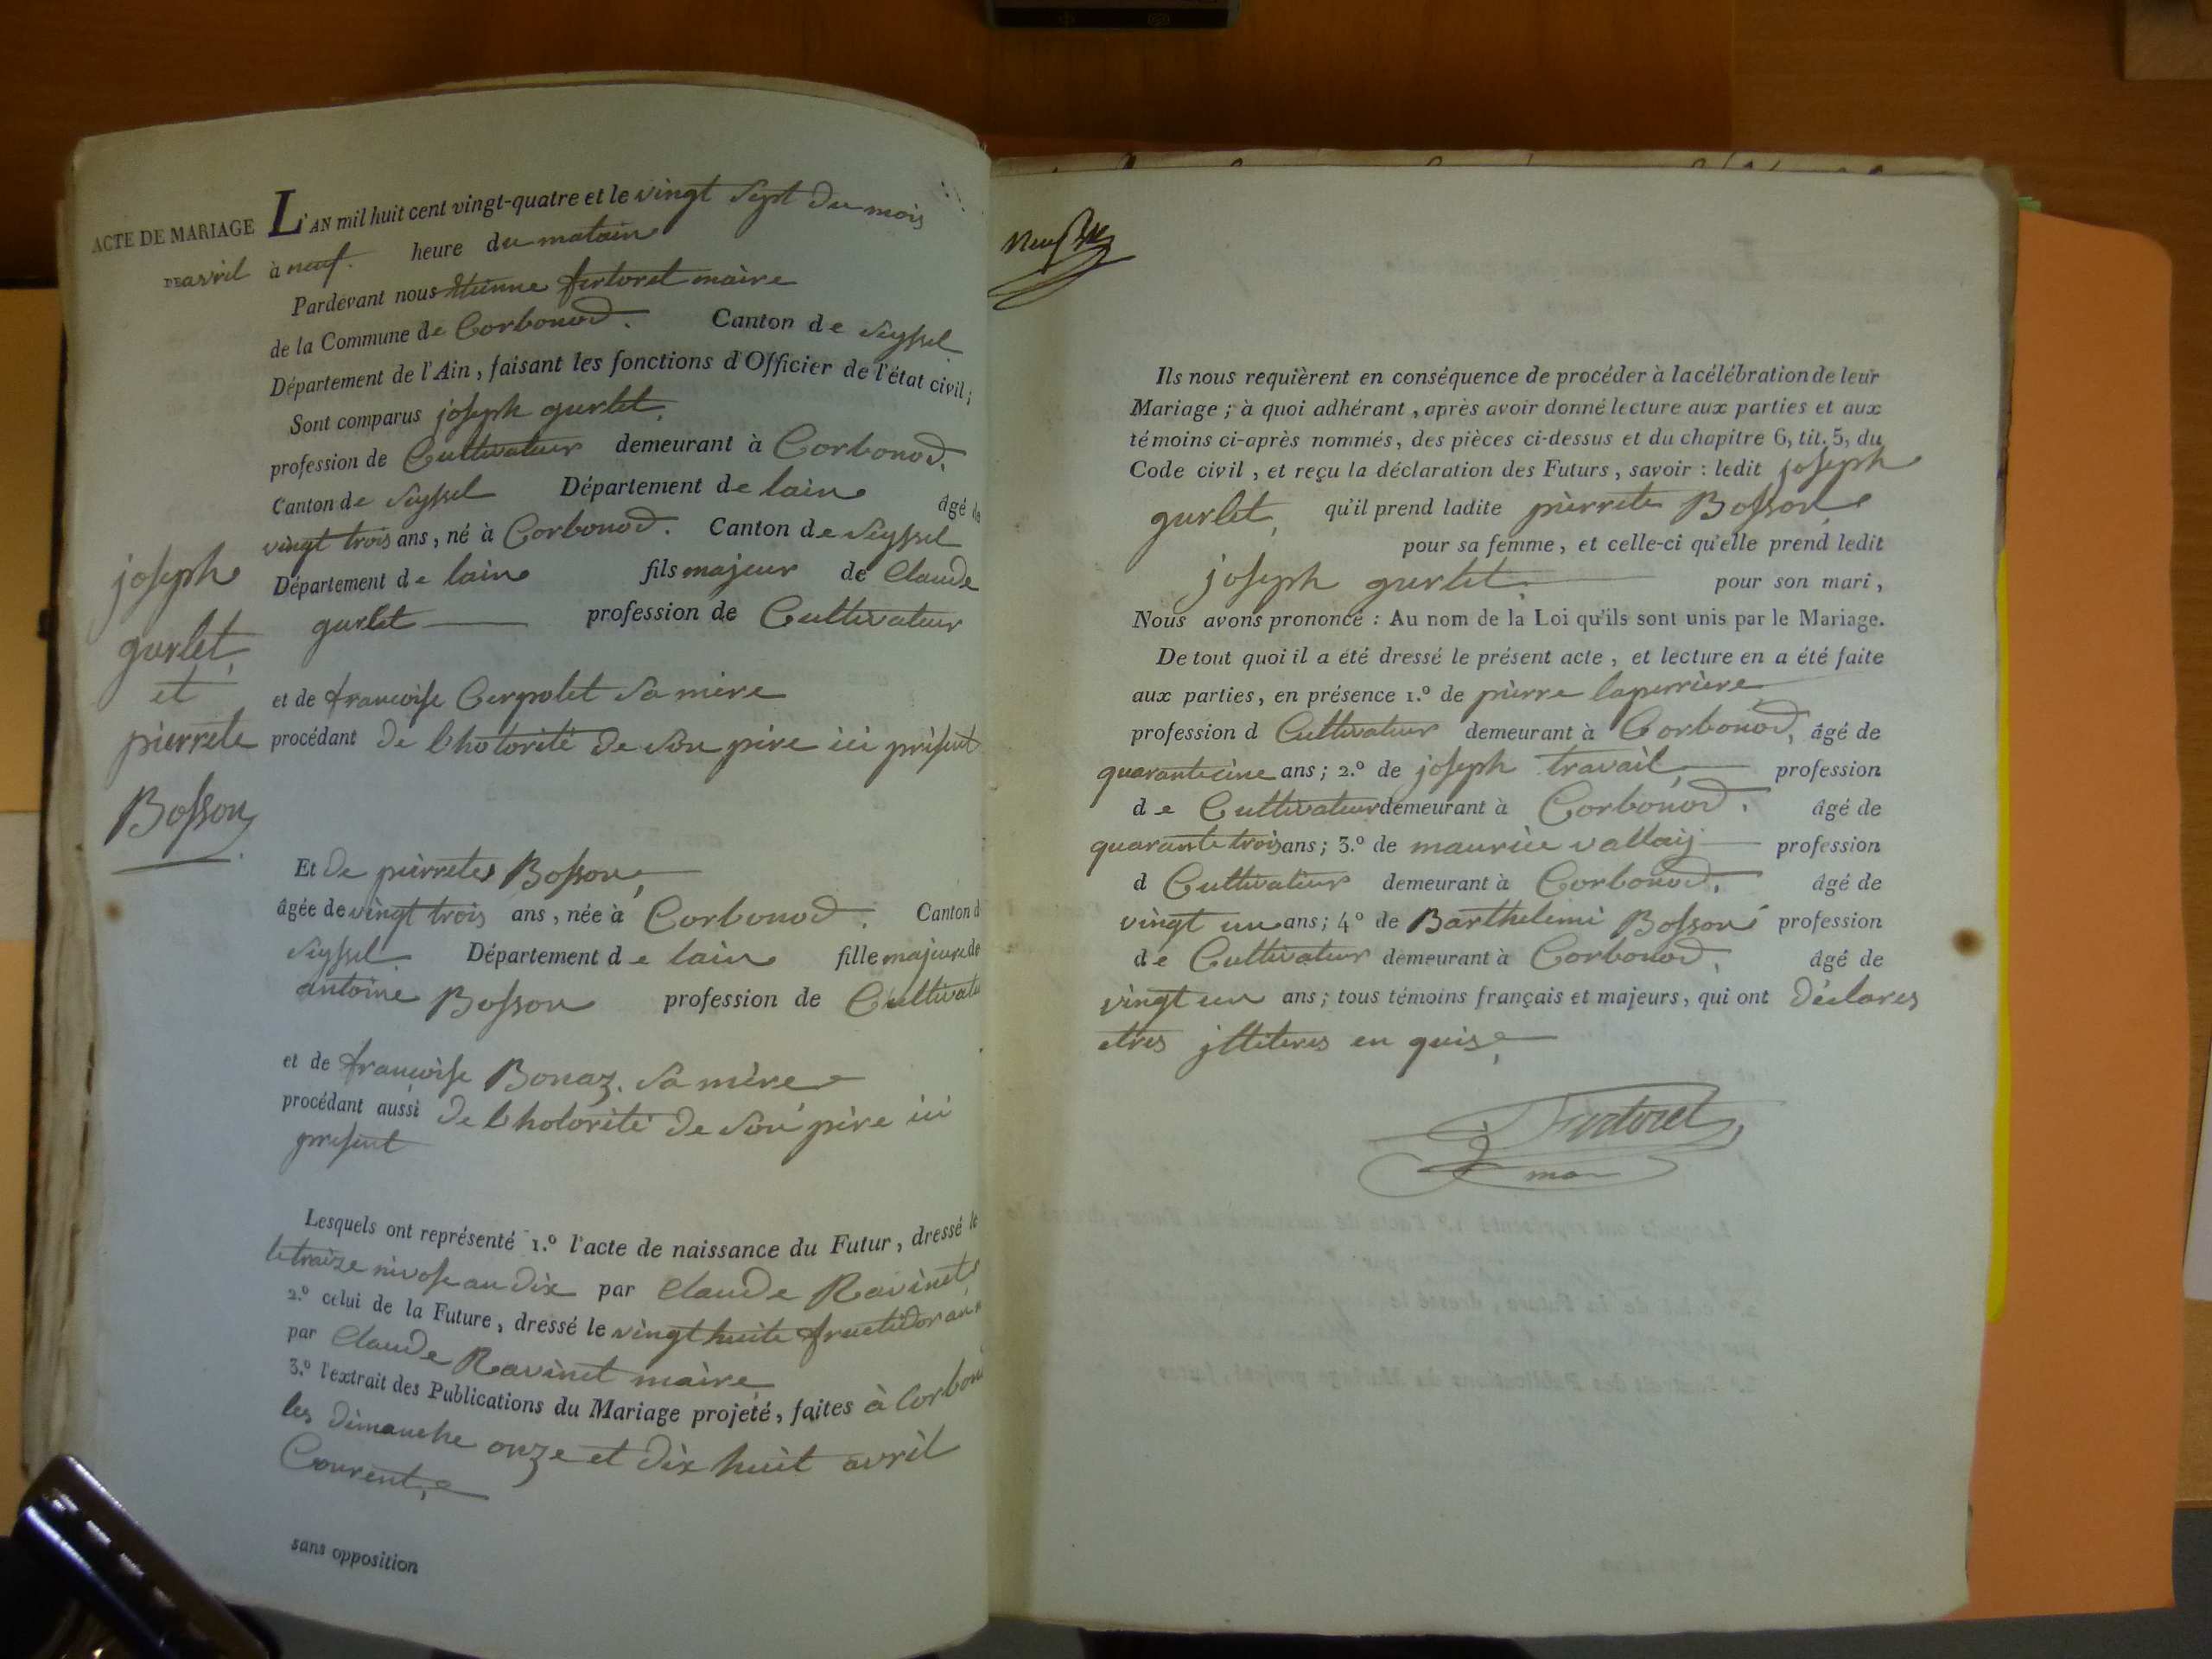 ACTE DE MARIAGE L'AN mil huit cent vingt-quatre et le vingt sept du mois
DE avril à neuf heure du matain
Pardevant nous etienne fertoret maire
de la Commune de Corbonod. Canton de Seyssel
Département de l'Ain, faisant les fonctions d'Officier de l'état civil;
Sont comparus joseph gurlet,
profession de Cultivateur demeurant à Corbonod,
Canton de Seyssel Département de lain âgé de
vingt trois ans, né à Corbonod. Canton de Seyssel
Département de lain fils majeur de Claude
gurlet profession de Cultivateur
et de francoise Cerpolet Sa mère
procédant de lhotorité de Son père ici présent
joseph
gurlet,
et
pierrete
Bosson
Et de pierrete Bosson,
âgée de vingt trois ans, née à Corbonod. Canton d
Seyssel Département de lain fille majeure de
antoine Bosson profession de Cultivateu
et de francoise Bonaz. Sa mère
procédant aussi de lhotorité de Son père ici
présent
Lesquels ont représenté 1.º l'acte de naissance du Futur, dressé le
le traize nivose an dix par Claude Ravinet
2.º celui de la Future, dressé le vingt huite fructidor an
par Claude Ravinet maire
3.º l'extrait des Publications du Mariage projeté, faites à Corbon
les dimanche onze et dix huit avril
Courent,
sans opposition
Neuf
Ils nous requièrent en conséquence de procéder à la célébration de leur
Mariage; à quoi adhérant, après avoir donné lecture aux parties et aux
témoins ci-après nommés, des pièces ci-dessus et du chapitre 6, tit. 5, du
Code civil, et reçu la déclaration des Futurs, savoir : ledit joseph
gurlet, qu'il prend ladite pierrete Bosson
pour sa femme, et celle-ci qu'elle prend ledit
joseph gurlet. pour son mari,
Nous avons prononcé : Au nom de la Loi qu'ils sont unis par le Mariage.
De tout quoi il a été dressé le présent acte, et lecture en a été faite
aux parties, en présence 1.º de pierre laperrière
profession d Cultivateur demeurant à Corbonod, âgé de
quarante cinc ans; 2.º de joseph travail, profession
de Cultivateur demeurant à Corbonod. âgé de
quarante trois ans; 3.º de maurice vallaij profession
d Cultivateur demeurant à Corbonod. âgé de
vingt un ans; 4º de Barthelimi Bosson profession
de Cultivateur demeurant à Corbonod, âgé de
vingt un ans; tous témoins français et majeurs, qui ont déclares
etres jlliteres en quis,
Fertoret